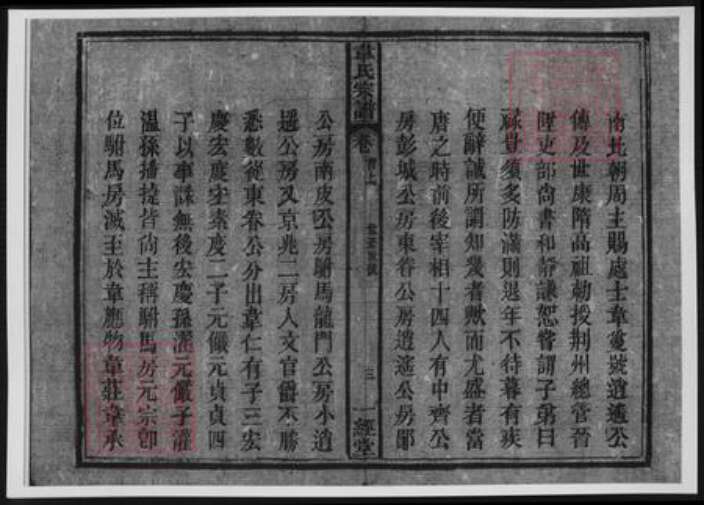 南北朝周主賜處士韋夐號逍遙公
傳及世康隋高祖勅授荆州總管晉
陞吏部尚書和靜謙恕嘗謂子弟曰
祿豈須多防滿則退年不待暮有疾
便辭誠所謂知幾者歟而尤盛者當
唐之時前後宰相十四人有中齊公
房彭城公房東眷公房逍遙公房鄖
韋氏宗譜 卷首上 三 一經堂
公房南皮公房駙馬龍門公房小逍
遙公房又京兆二房人文官爵不勝
悉數從東眷公分出韋仁有子三宏
慶宏度宏素度二子元儼元貞貞四
子以事誅無後宏慶孫濯元儼子濯
溫孫捷皆尚主稱駙馬房元宗卽
位駙馬房滅至於韋應物韋莊韋承